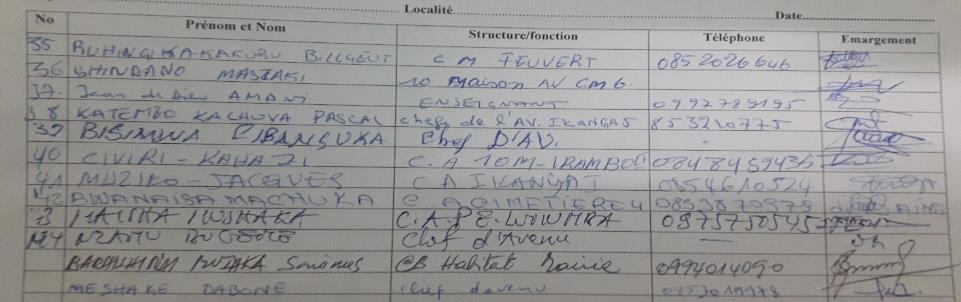 Localité.......... Date..........
No Prénom et Nom Structure/fonction Téléphone Emargement
35 BUHINGI KAKAKURU C M FEUVERT 0852026646
36 SHINDANO MASTAKI 10 Maison AV CM6
37. Jean de Dieu AMANI ENSEIGNANT 0992789195
38 KATEMBO KACHOVA PASCAL Chef de l'AV. IKANGAS 853210775
39 BISIMWA CIBANGUKA Chef D'AV.
40 CIVIRI - KAHAZI C.A 10M-IRAMBO 0848459436
41 MUZIKO - JACQUES C A IKANGAI 0854610524
42 BWANAISA MACHUKA C A CIMETIERE 4 0853879979
3 C.A.P.E. 0975750545
44 NZAMU Chef d'Avenu —
Habitat Mairie 0994014090
MESHAKE DABONE chef d'avenu 0853019978